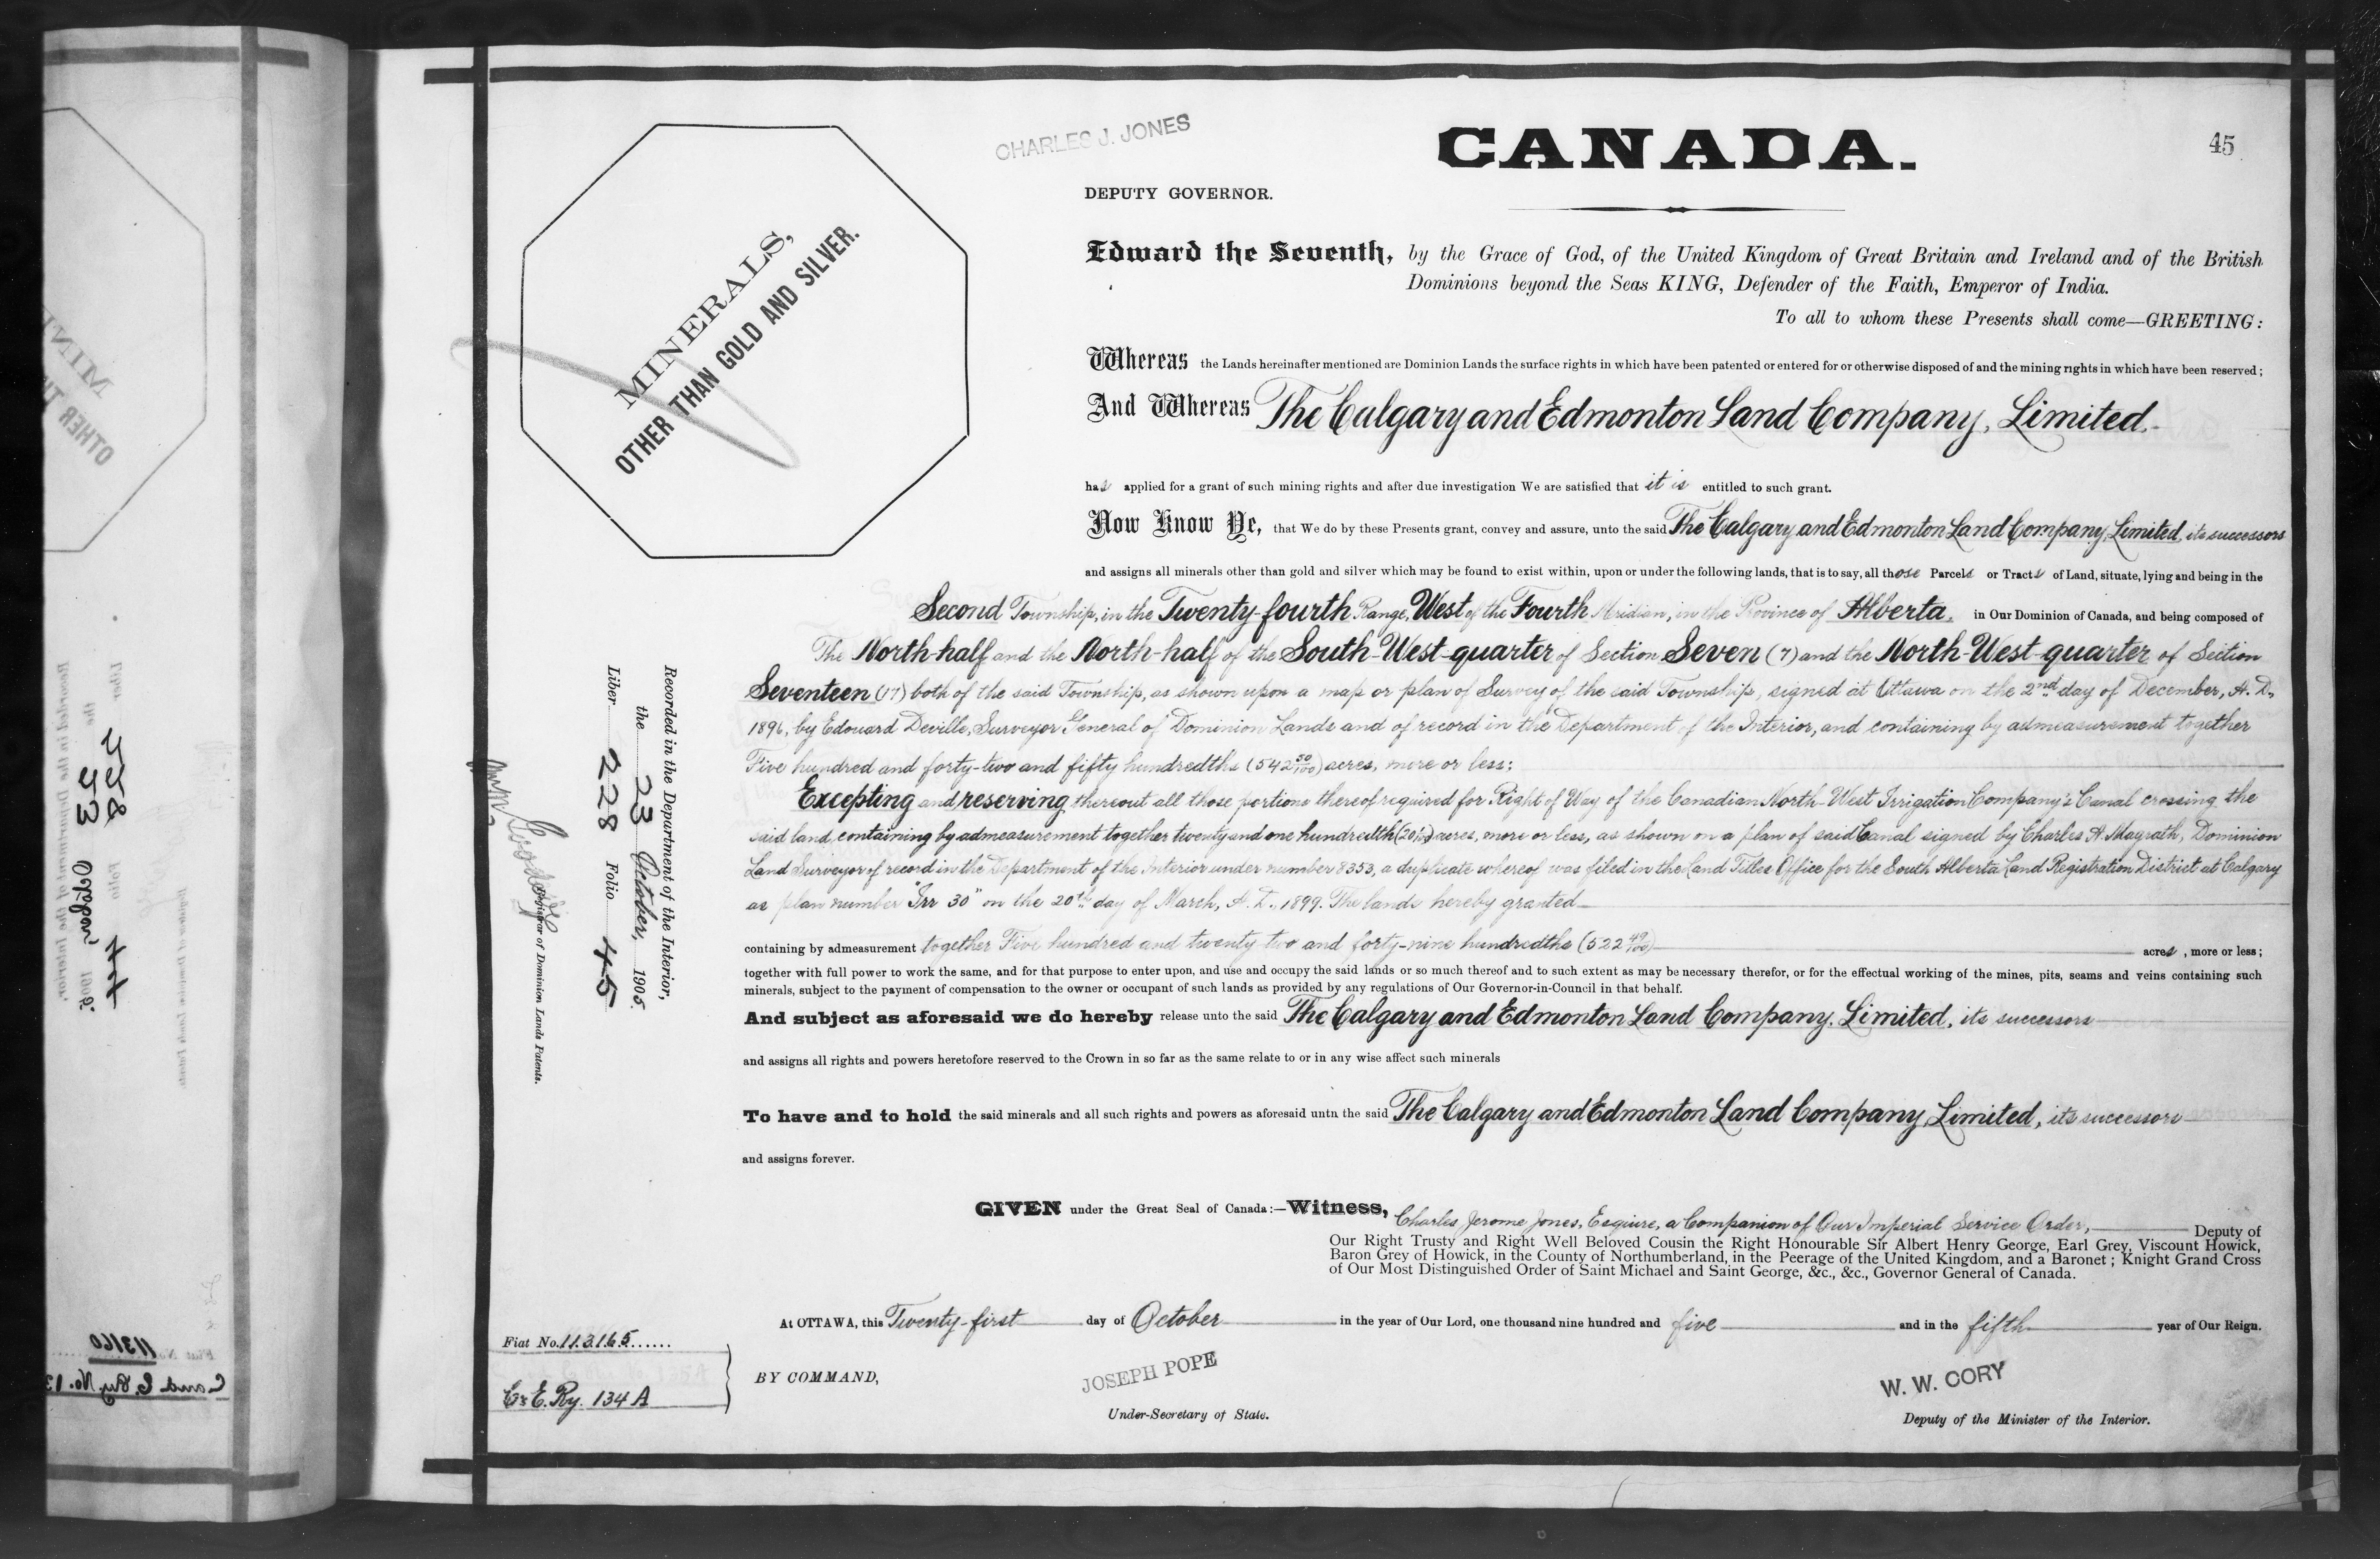 CHARLES J. JONES
CANADA.
45
DEPUTY GOVERNOR.
MINERALS,
OTHER THAN GOLD AND SILVER.
Edward the Seventh, by the Grace of God, of the United Kingdom of Great Britain and Ireland and of the British
Dominions beyond the Seas KING, Defender of the Faith, Emperor of India.
To all to whom these Presents shall come—GREETING:
Whereas the Lands hereinafter mentioned are Dominion Lands the surface rights in which have been patented or entered for or otherwise disposed of and the mining rights in which have been reserved;
And Whereas The Calgary and Edmonton Land Company, Limited,
has applied for a grant of such mining rights and after due investigation We are satisfied that it is entitled to such grant.
Now Know Ye, that We do by these Presents grant, convey and assure, unto the said The Calgary and Edmonton Land Company, Limited, its successors
and assigns all minerals other than gold and silver which may be found to exist within, upon or under the following lands, that is to say, all those Parcels or Tracts of Land, situate, lying and being in the
Second Township, in the Twenty-fourth Range, West of the Fourth Meridian, in the Province of Alberta, in Our Dominion of Canada, and being composed of
The North-half and the North-half of the South-West-quarter of Section Seven (7) and the North-West-quarter of Section
Seventeen (17) both of the said Township, as shown upon a map or plan of Survey of the said Township, signed at Ottawa on the 2nd day of December, A. D.,
1896, by Edouard Deville, Surveyor General of Dominion Lands and of record in the Department of the Interior, and containing by admeasurement together
Five hundred and forty-two and fifty hundredths (542 50/100) acres, more or less;
Excepting and reserving thereout all those portions thereof required for Right of Way of the Canadian North-West Irrigation Company's Canal crossing the
said land, containing by admeasurement together twenty and one hundredth (20 1/100) acres, more or less, as shown on a plan of said Canal signed by Charles A. Magrath, Dominion
Land Surveyor of record in the Department of the Interior under number 8353, a duplicate whereof was filed in the Land Titles Office for the South Alberta Land Registration District at Calgary
as plan number "Irr 30" on the 20th day of March, A. D., 1899. The lands hereby granted
containing by admeasurement together Five hundred and twenty-two and forty-nine hundredths (522 49/100) acres, more or less;
together with full power to work the same, and for that purpose to enter upon, and use and occupy the said lands or so much thereof and to such extent as may be necessary therefor, or for the effectual working of the mines, pits, seams and veins containing such
minerals, subject to the payment of compensation to the owner or occupant of such lands as provided by any regulations of Our Governor-in-Council in that behalf.
And subject as aforesaid we do hereby release unto the said The Calgary and Edmonton Land Company, Limited, its successors
and assigns all rights and powers heretofore reserved to the Crown in so far as the same relate to or in any wise affect such minerals
To have and to hold the said minerals and all such rights and powers as aforesaid unto the said The Calgary and Edmonton Land Company, Limited, its successors
and assigns forever.
GIVEN under the Great Seal of Canada:—Witness, Charles Jerome Jones, Esquire, a Companion of Our Imperial Service Order, Deputy of
Our Right Trusty and Right Well Beloved Cousin the Right Honourable Sir Albert Henry George, Earl Grey, Viscount Howick,
Baron Grey of Howick, in the County of Northumberland, in the Peerage of the United Kingdom, and a Baronet; Knight Grand Cross
of Our Most Distinguished Order of Saint Michael and Saint George, &c., &c., Governor General of Canada.
At OTTAWA, this Twenty-first day of October in the year of Our Lord, one thousand nine hundred and five and in the fifth year of Our Reign.
BY COMMAND,
JOSEPH POPE
Under-Secretary of State.
W. W. CORY
Deputy of the Minister of the Interior.
Recorded in the Department of the Interior,
the 23 October, 1905.
Liber 228 Folio 45
Registrar of Dominion Lands Patents.
Fiat No. 113165
C & E. Ry. 134 A